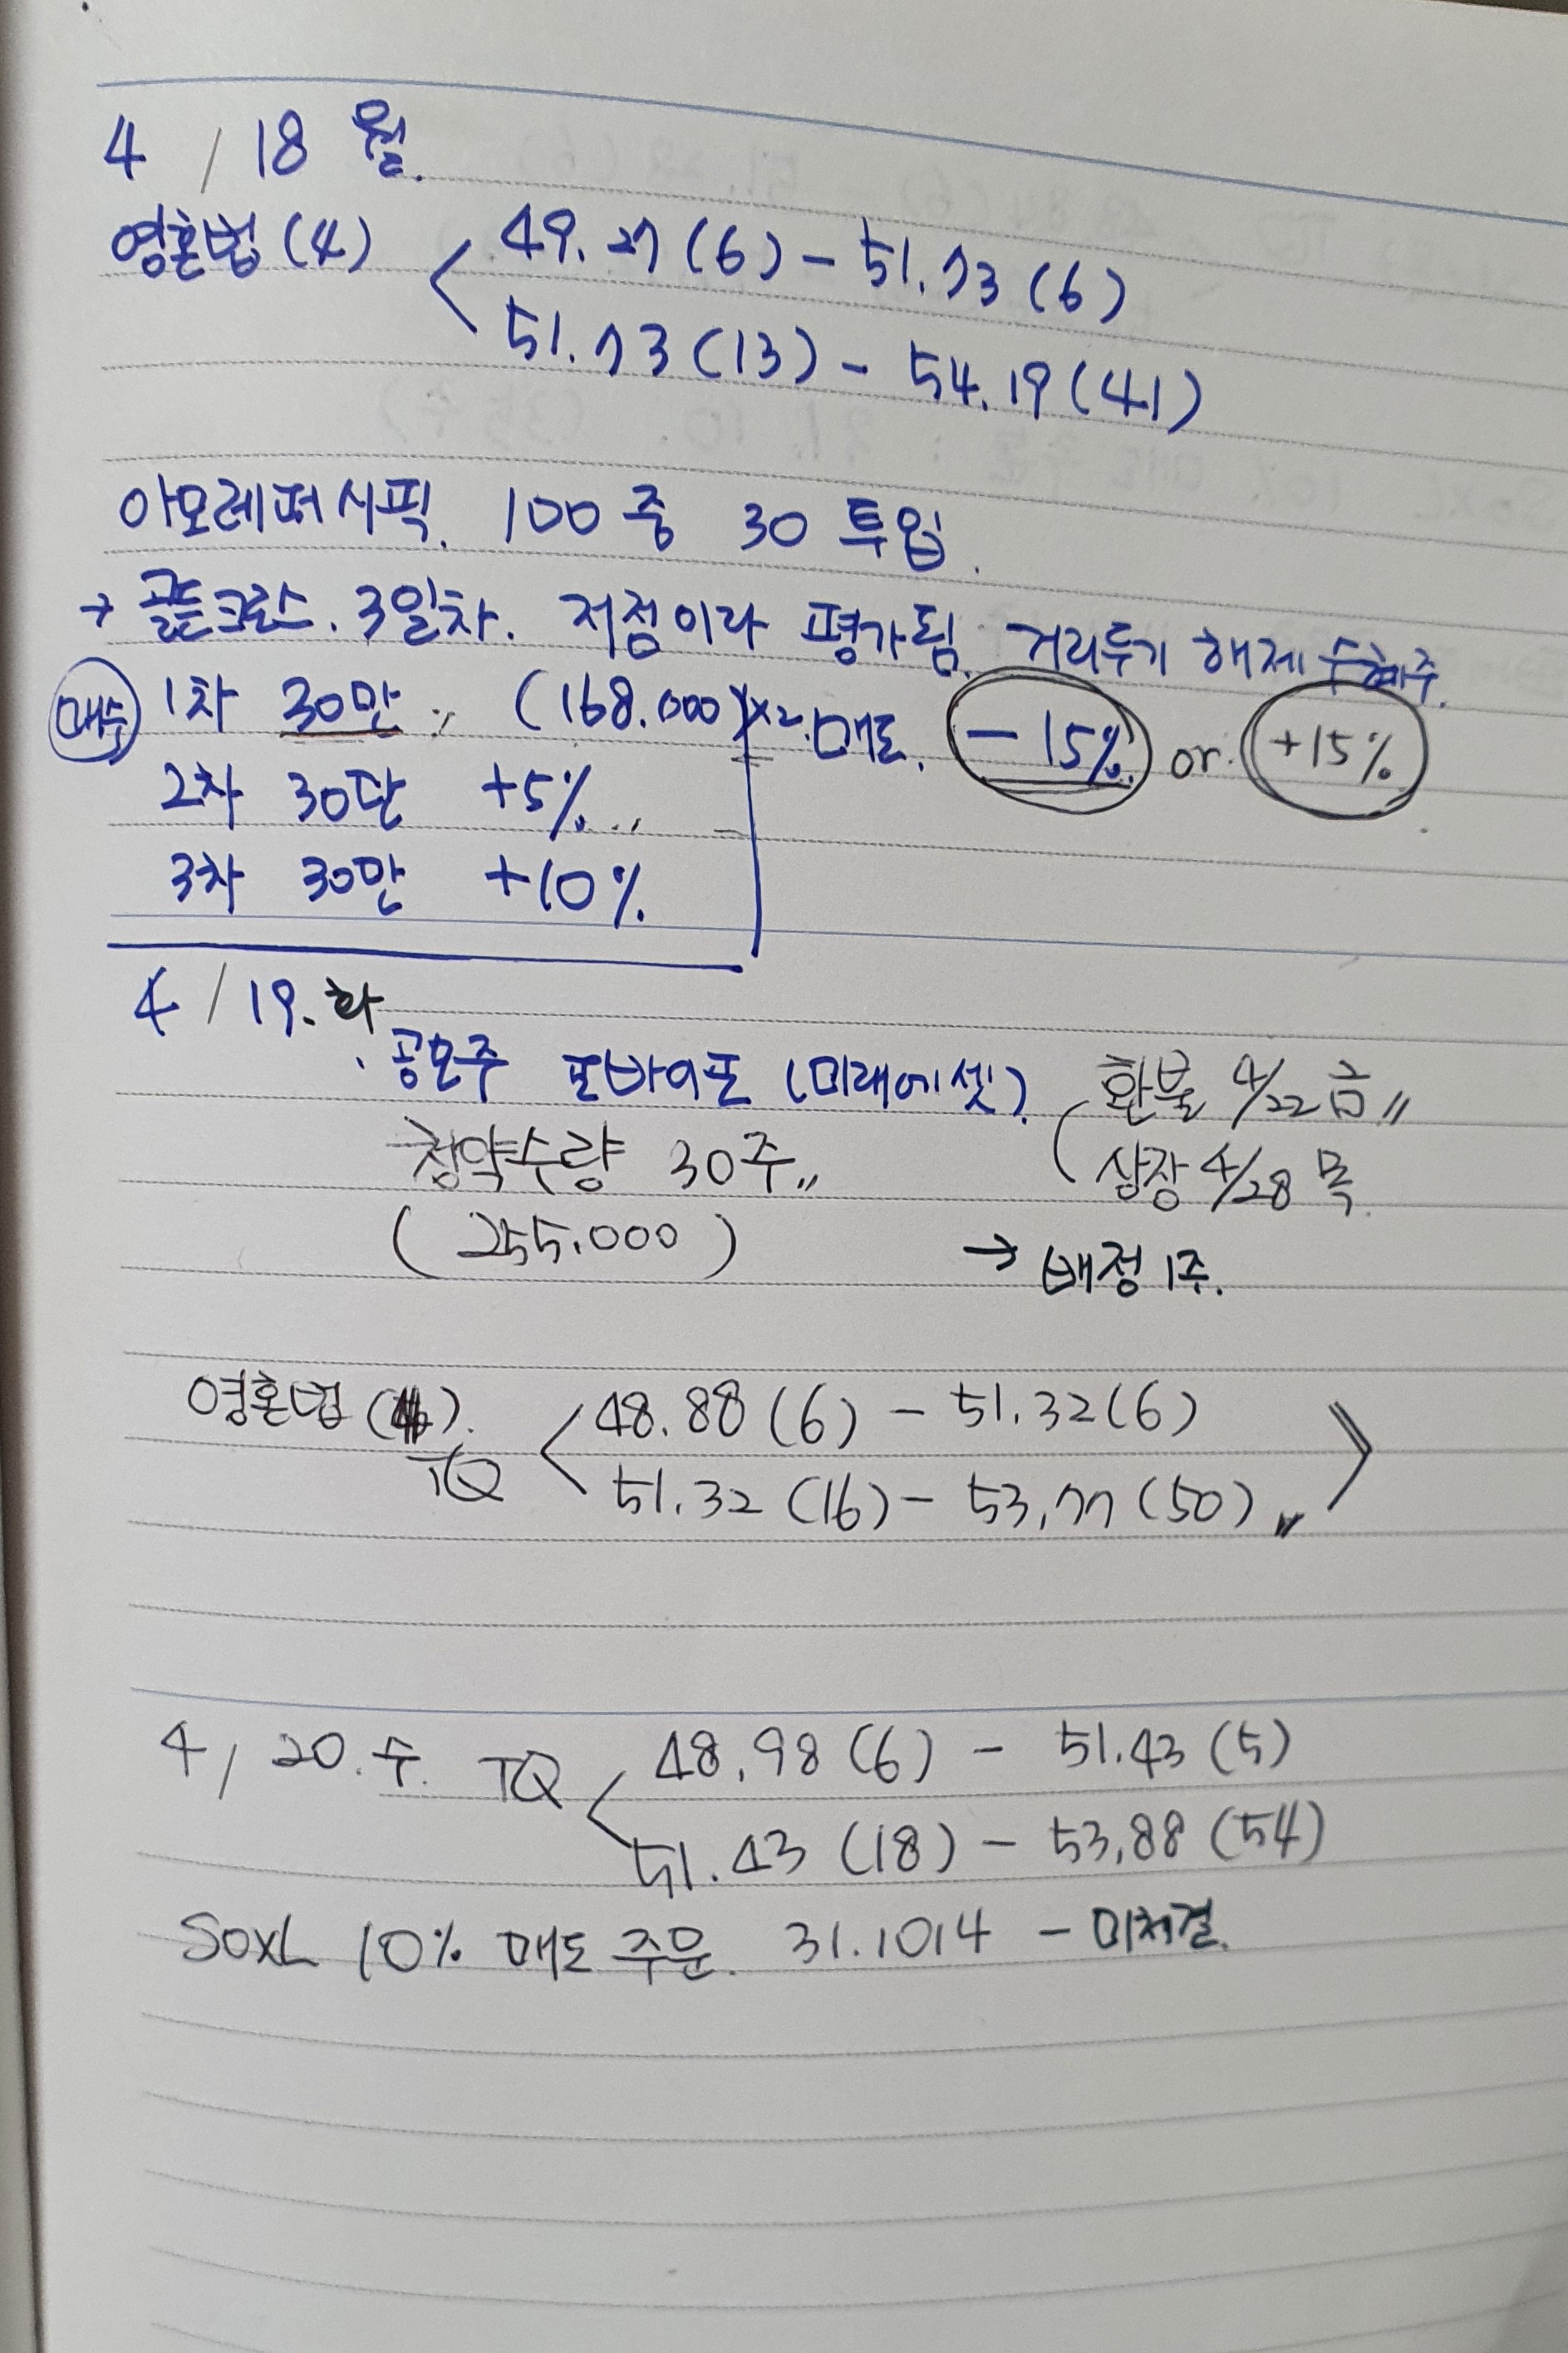 4 / 18 월.
영혼법 (4) < 49.27 (6) - 51.73 (6)
51.73 (13) - 54.19 (41)
아모레퍼시픽. 100 중 30 투입.
→ 골든크로스. 3일차. 저점이라 평가됨. 거리두기 해제 수혜주.
매수 1차 30만 (168.000) x2. 매도. -15% or. +15%
2차 30만 +5%
3차 30만 +10%
4 / 19. 화
공모주 포바이포 (미래에셋) 환불 4/22 금
청약수량 30주 상장 4/28 목
(255.000) → 배정 1주.
영혼법 (4). < 48.88 (6) - 51.32 (6)
TQ 51.32 (16) - 53.77 (50) >
4 / 20. 수. TQ < 48.98 (6) - 51.43 (5)
51.43 (18) - 53.88 (54)
SOXL 10% 매도 주문. 31.1014 - 미체결.